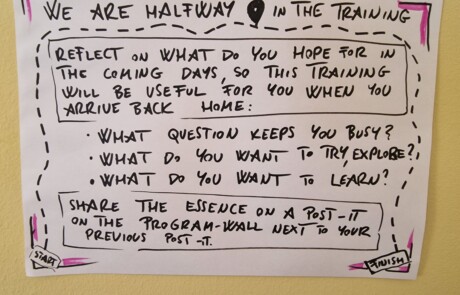 WE ARE HALFWAY IN THE TRAINING
REFLECT ON WHAT DO YOU HOPE FOR IN
THE COMING DAYS, SO THIS TRAINING
WILL BE USEFUL FOR YOU WHEN YOU
ARRIVE BACK HOME:
· WHAT QUESTION KEEPS YOU BUSY?
· WHAT DO YOU WANT TO TRY/EXPLORE?
· WHAT DO YOU WANT TO LEARN?
SHARE THE ESSENCE ON A POST-IT
ON THE PROGRAM-WALL NEXT TO YOUR
PREVIOUS POST-IT.
START
FINISH